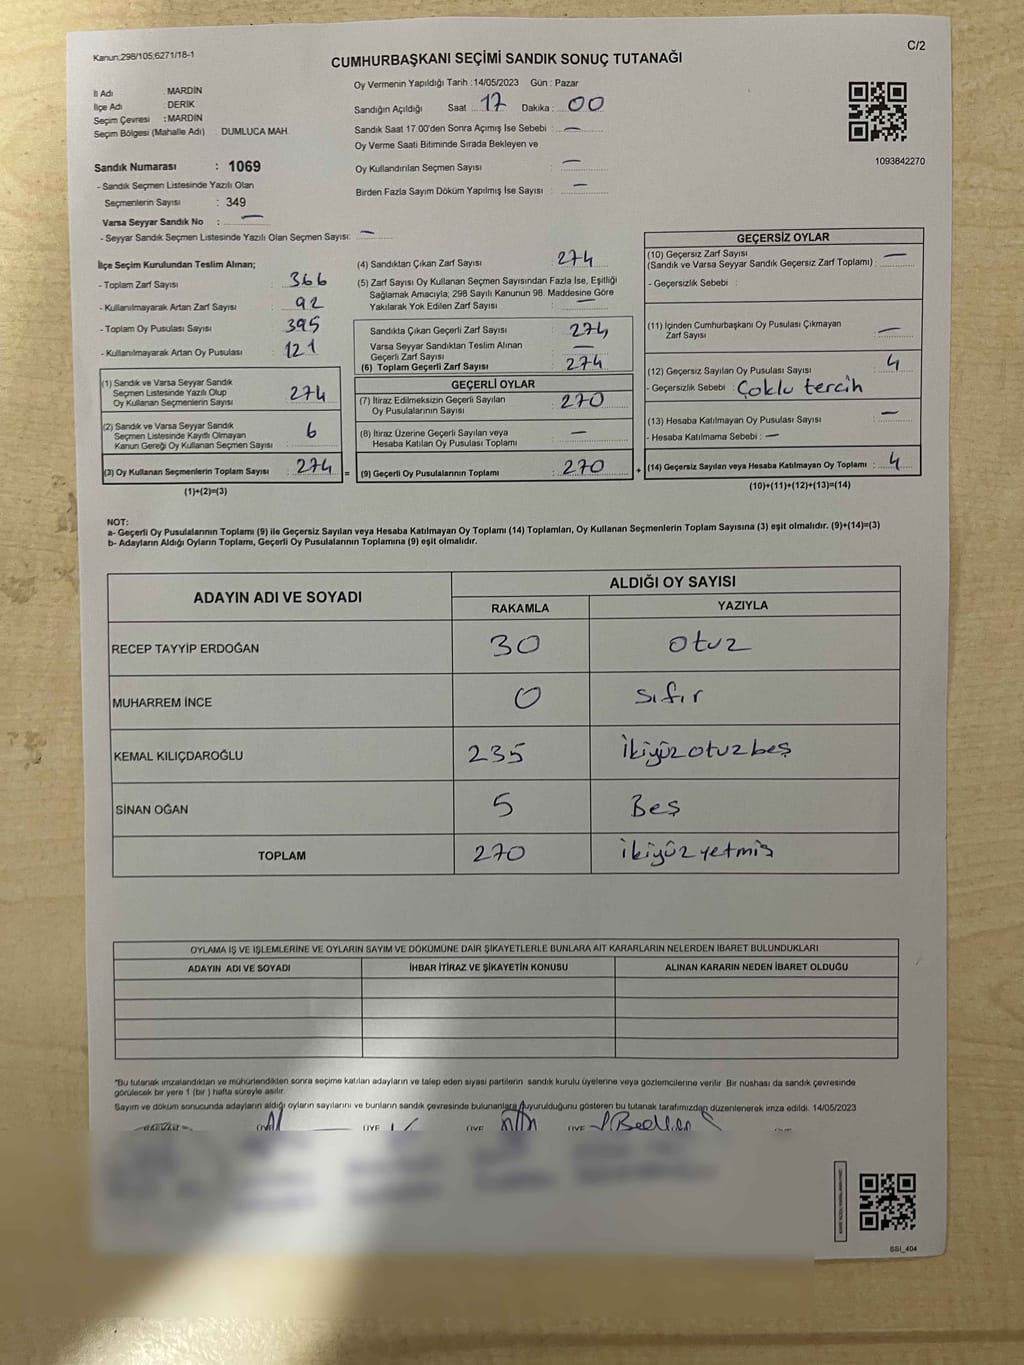 Kanun;298/105;6271/18-1
C/2
CUMHURBAŞKANI SEÇİMİ SANDIK SONUÇ TUTANAĞI
İl Adı : MARDİN
İlçe Adı : DERİK
Seçim Çevresi : MARDİN
Seçim Bölgesi (Mahalle Adı) : DUMLUCA MAH.
Sandık Numarası : 1069
- Sandık Seçmen Listesinde Yazılı Olan
Seçmenlerin Sayısı : 349
Varsa Seyyar Sandık No : —
- Seyyar Sandık Seçmen Listesinde Yazılı Olan Seçmen Sayısı: —
Oy Vermenin Yapıldığı Tarih :14/05/2023 Gün : Pazar
Sandığın Açıldığı Saat 17 Dakika : 00
Sandık Saat 17.00'den Sonra Açımış İse Sebebi : —
Oy Verme Saati Bitiminde Sırada Bekleyen ve
Oy Kullandırılan Seçmen Sayısı : —
Birden Fazla Sayım Döküm Yapılmış İse Sayısı : —
1093842270
İlçe Seçim Kurulundan Teslim Alınan;
- Toplam Zarf Sayısı : 366
- Kullanılmayarak Artan Zarf Sayısı : 92
- Toplam Oy Pusulası Sayısı : 395
- Kullanılmayarak Artan Oy Pusulası : 121
(1) Sandık ve Varsa Seyyar Sandık
Seçmen Listesinde Yazılı Olup
Oy Kullanan Seçmenlerin Sayısı : 274
(2) Sandık ve Varsa Seyyar Sandık
Seçmen Listesinde Kayıtlı Olmayan
Kanun Gereği Oy Kullanan Seçmen Sayısı : 6
(3) Oy Kullanan Seçmenlerin Toplam Sayısı : 274 =
(1)+(2)=(3)
(4) Sandıktan Çıkan Zarf Sayısı : 274
(5) Zarf Sayısı Oy Kullanan Seçmen Sayısından Fazla İse, Eşitliği
Sağlamak Amacıyla; 298 Sayılı Kanunun 98. Maddesine Göre
Yakılarak Yok Edilen Zarf Sayısı : —
Sandıkta Çıkan Geçerli Zarf Sayısı : 274
Varsa Seyyar Sandıktan Teslim Alınan
Geçerli Zarf Sayısı : —
(6) Toplam Geçerli Zarf Sayısı : 274
GEÇERLİ OYLAR
(7) İtiraz Edilmeksizin Geçerli Sayılan
Oy Pusulalarının Sayısı : 270
(8) İtiraz Üzerine Geçerli Sayılan veya
Hesaba Katılan Oy Pusulası Toplamı : —
(9) Geçerli Oy Pusulalarının Toplamı : 270 +
GEÇERSİZ OYLAR
(10) Geçersiz Zarf Sayısı
(Sandık ve Varsa Seyyar Sandık Geçersiz Zarf Toplamı) : —
- Geçersizlik Sebebi :
(11) İçinden Cumhurbaşkanı Oy Pusulası Çıkmayan
Zarf Sayısı : —
(12) Geçersiz Sayılan Oy Pusulası Sayısı : 4
- Geçersizlik Sebebi : Çoklu tercih
(13) Hesaba Katılmayan Oy Pusulası Sayısı : —
- Hesaba Katılmama Sebebi : —
(14) Geçersiz Sayılan veya Hesaba Katılmayan Oy Toplamı : 4
(10)+(11)+(12)+(13)=(14)
NOT:
a- Geçerli Oy Pusulalarının Toplamı (9) ile Geçersiz Sayılan veya Hesaba Katılmayan Oy Toplamı (14) Toplamları, Oy Kullanan Seçmenlerin Toplam Sayısına (3) eşit olmalıdır. (9)+(14)=(3)
b- Adayların Aldığı Oyların Toplamı, Geçerli Oy Pusulalarının Toplamına (9) eşit olmalıdır.
ADAYIN ADI VE SOYADI ALDIĞI OY SAYISI
RAKAMLA YAZIYLA
RECEP TAYYİP ERDOĞAN 30 otuz
MUHARREM İNCE 0 sıfır
KEMAL KILIÇDAROĞLU 235 ikiyüzotuzbeş
SİNAN OĞAN 5 Beş
TOPLAM 270 ikiyüzyetmiş
OYLAMA İŞ VE İŞLEMLERİNE VE OYLARIN SAYIM VE DÖKÜMÜNE DAİR ŞİKAYETLERLE BUNLARA AİT KARARLARIN NELERDEN İBARET BULUNDUKLARI
ADAYIN ADI VE SOYADI İHBAR İTİRAZ VE ŞİKAYETİN KONUSU ALINAN KARARIN NEDEN İBARET OLDUĞU
*Bu tutanak imzalandıktan ve mühürlendikten sonra seçime katılan adayların ve talep eden siyasi partilerin sandık kurulu üyelerine veya gözlemcilerine verilir. Bir nüshası da sandık çevresinde
görülecek bir yere 1 (bir ) hafta süreyle asılır.
Sayım ve döküm sonucunda adayların aldığı oyların sayılarını ve bunların sandık çevresinde bulunanlara duyurulduğunu gösteren bu tutanak tarafımızdan düzenlenerek imza edildi. 14/05/2023
ÜYE ÜYE ÜYE
SSI_404